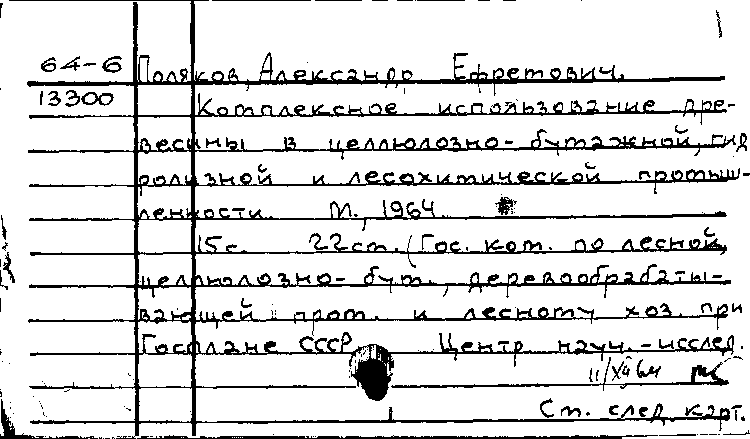 64-6 Поляков, Александр Ефретович.
13300 Комплексное использование дре-
весины в целлюлозно-бумажной, гид
ролизной и лесохимической промыш-
ленности. М., 1964
15с. 22см. (Гос. ком. по лесной,
целлюлозно-бум., деревообрабаты-
вающей пром. и лесному хоз. при
Госплане СССР. Центр науч.-исслед.
См. след. карт.